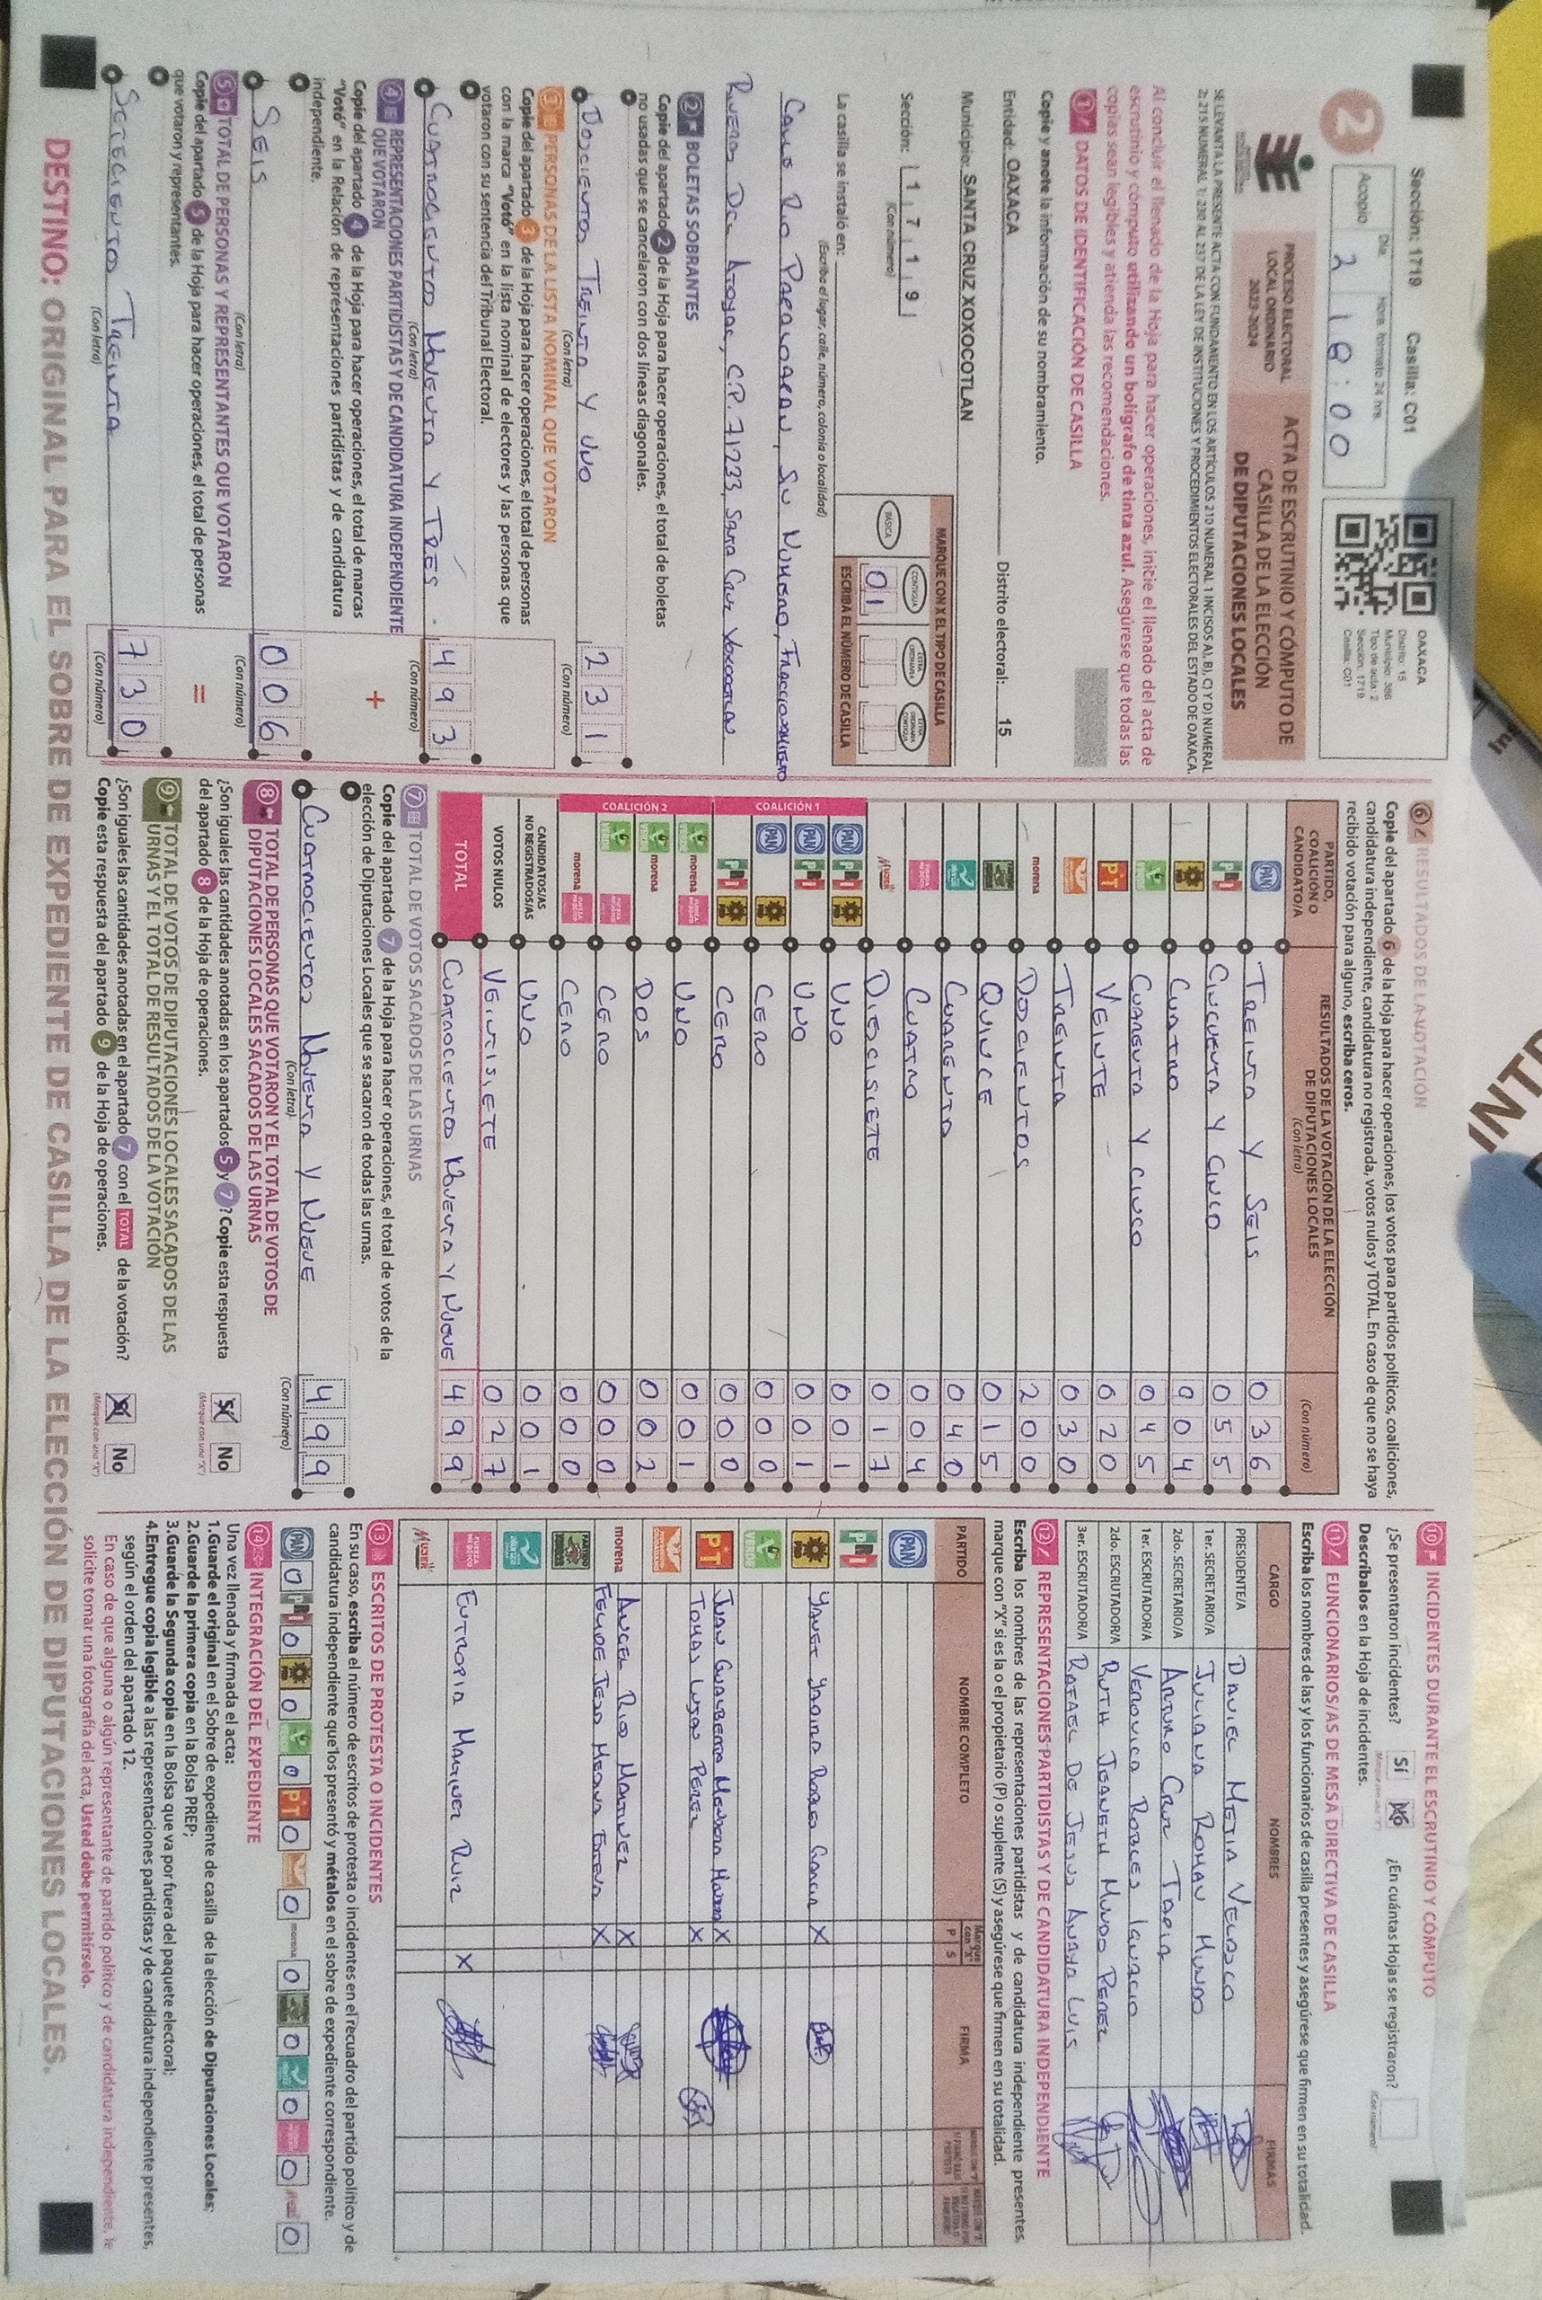 Sección: 1719 Casilla: C01
2
Acopio
Día
Hora, formato 24 hrs.
2 18:00
OAXACA
Distrito: 15
Municipio: 386
Tipo de acta: 2
Sección: 1719
Casilla: C01
PROCESO ELECTORAL
LOCAL ORDINARIO
2023-2024
ACTA DE ESCRUTINIO Y CÓMPUTO DE
CASILLA DE LA ELECCIÓN
DE DIPUTACIONES LOCALES
SE LEVANTA LA PRESENTE ACTA CON FUNDAMENTO EN LOS ARTÍCULOS 210 NUMERAL 1 INCISOS A), B), C) Y D) NUMERAL
2; 215 NUMERAL 1; 230 AL 237 DE LA LEY DE INSTITUCIONES Y PROCEDIMIENTOS ELECTORALES DEL ESTADO DE OAXACA.
Al concluir el llenado de la Hoja para hacer operaciones, inicie el llenado del acta de
escrutinio y cómputo utilizando un bolígrafo de tinta azul. Asegúrese que todas las
copias sean legibles y atienda las recomendaciones.
1 DATOS DE IDENTIFICACIÓN DE CASILLA
Copie y anote la información de su nombramiento.
Entidad: OAXACA Distrito electoral: 15
Municipio: SANTA CRUZ XOXOCOTLAN
Sección: 1 7 1 9
(Con número)
MARQUE CON X EL TIPO DE CASILLA
BÁSICA
CONTIGUA
EXTRA ORDINARIA
EXTRA ORDINARIA CONTIGUA
01
ESCRIBA EL NÚMERO DE CASILLA
La casilla se instaló en:
(Escriba el lugar, calle, número, colonia o localidad)
SN NUMERO, FRACCIONAMIENTO
RIVERAS DEL ATOYAC, C.P. 71233, SANTA CRUZ XOXOCOTLAN
2 BOLETAS SOBRANTES
Copie del apartado 2 de la Hoja para hacer operaciones, el total de boletas
no usadas que se cancelaron con dos líneas diagonales.
DOSCIENTOS TREINTA Y UNO 2 3 1
(Con letra) (Con número)
3 PERSONAS DE LA LISTA NOMINAL QUE VOTARON
Copie del apartado 3 de la Hoja para hacer operaciones, el total de personas
con la marca "Votó" en la lista nominal de electores y las personas que
votaron con su sentencia del Tribunal Electoral.
CUATROCIENTOS NOVENTA Y TRES 4 9 3
(Con letra) (Con número)
4 REPRESENTACIONES PARTIDISTAS Y DE CANDIDATURA INDEPENDIENTE
QUE VOTARON
Copie del apartado 4 de la Hoja para hacer operaciones, el total de marcas
"Votó" en la Relación de representaciones partidistas y de candidatura
independiente.
+
SEIS 0 0 6
(Con letra) (Con número)
5 TOTAL DE PERSONAS Y REPRESENTANTES QUE VOTARON
Copie del apartado 5 de la Hoja para hacer operaciones, el total de personas
que votaron y representantes.
=
SETECIENTOS TREINTA 7 3 0
(Con letra) (Con número)
6 RESULTADOS DE LA VOTACIÓN
Copie del apartado 6 de la Hoja para hacer operaciones, los votos para partidos políticos, coaliciones,
candidatura independiente, candidatura no registrada, votos nulos y TOTAL. En caso de que no se haya
recibido votación para alguno, escriba ceros.
PARTIDO, COALICIÓN O CANDIDATO/A
RESULTADOS DE LA VOTACIÓN DE LA ELECCIÓN
DE DIPUTACIONES LOCALES
(Con letra)
(Con número)
PAN TREINTA Y SEIS 0 3 6
PRI CINCUENTA Y CINCO 0 5 5
PRD CUATRO 0 0 4
VERDE CUARENTA Y CINCO 0 4 5
PT VEINTE 0 2 0
TREINTA 0 3 0
morena DOSCIENTOS 2 0 0
QUINCE 0 1 5
CUARENTA 0 4 0
CUATRO 0 0 4
MUJER DIECISIETE 0 1 7
COALICIÓN 1
PAN PRI PRD UNO 0 0 1
PAN PRI UNO 0 0 1
PAN PRD CERO 0 0 0
PRI PRD CERO 0 0 0
COALICIÓN 2
VERDE morena FUERZA MÉXICO UNO 0 0 1
VERDE morena DOS 0 0 2
VERDE FUERZA MÉXICO CERO 0 0 0
morena FUERZA MÉXICO CERO 0 0 0
CANDIDATOS/AS
NO REGISTRADOS/AS UNO 0 0 1
VOTOS NULOS VEINTISIETE 0 2 7
TOTAL CUATROCIENTOS NOVENTA Y NUEVE 4 9 9
7 TOTAL DE VOTOS SACADOS DE LAS URNAS
Copie del apartado 7 de la Hoja para hacer operaciones, el total de votos de la
elección de Diputaciones Locales que se sacaron de todas las urnas.
CUATROCIENTOS NOVENTA Y NUEVE 4 9 9
(Con letra) (Con número)
8 TOTAL DE PERSONAS QUE VOTARON Y EL TOTAL DE VOTOS DE
DIPUTACIONES LOCALES SACADOS DE LAS URNAS
¿Son iguales las cantidades anotadas en los apartados 5 y 7? Copie esta respuesta
del apartado 8 de la Hoja de operaciones.
Sí No
(Marque con una "X")
9 TOTAL DE VOTOS DE DIPUTACIONES LOCALES SACADOS DE LAS
URNAS Y EL TOTAL DE RESULTADOS DE LA VOTACIÓN
¿Son iguales las cantidades anotadas en el apartado 7 con el TOTAL de la votación?
Copie esta respuesta del apartado 9 de la Hoja de operaciones.
Sí No
(Marque con una "X")
10 INCIDENTES DURANTE EL ESCRUTINIO Y CÓMPUTO
¿Se presentaron incidentes? SÍ No ¿En cuántas Hojas se registraron?
(Marque con una "X") (Con número)
Descríbalos en la Hoja de incidentes.
11 FUNCIONARIOS/AS DE MESA DIRECTIVA DE CASILLA
Escriba los nombres de las y los funcionarios de casilla presentes y asegúrese que firmen en su totalidad.
CARGO NOMBRES FIRMAS
PRESIDENTE/A DANIEL MEJIA VELASCO
1er. SECRETARIO/A JULIANA ROMAN MUNDO
2do. SECRETARIO/A ARTURO CRUZ TAPIA
1er. ESCRUTADOR/A VERONICA ROBLES IGNACIO
2do. ESCRUTADOR/A RUTH JEANETH MUNDO PEREZ
3er. ESCRUTADOR/A RAFAEL DE JESUS ANAYA LUIS
12 REPRESENTACIONES PARTIDISTAS Y DE CANDIDATURA INDEPENDIENTE
Escriba los nombres de las representaciones partidistas y de candidatura independiente presentes,
marque con "X" si es la o el propietario (P) o suplente (S) y asegúrese que firmen en su totalidad.
PARTIDO NOMBRE COMPLETO Marque con "X" P S FIRMA
PAN
PRI
PRD GARCIA X
VERDE
PT JUAN GUALBERTO X
TOMAS LUJAN PEREZ X
morena ANGEL RIOS MARTINEZ X
FELIPE X
EUTROPIA MARTINEZ RUIZ X
MUJER
13 ESCRITOS DE PROTESTA O INCIDENTES
En su caso, escriba el número de escritos de protesta o incidentes en el recuadro del partido político y de
candidatura independiente que los presentó y métalos en el sobre de expediente correspondiente.
PAN 0 PRI 0 PRD 0 VERDE 0 PT 0 0 morena 0 0 0 0 0
14 INTEGRACIÓN DEL EXPEDIENTE
Una vez llenada y firmada el acta:
1.Guarde el original en el Sobre de expediente de casilla de la elección de Diputaciones Locales;
2.Guarde la primera copia en la Bolsa PREP;
3.Guarde la Segunda copia en la Bolsa que va por fuera del paquete electoral;
4.Entregue copia legible a las representaciones partidistas y de candidatura independiente presentes,
según el orden del apartado 12.
En caso de que alguna o algún representante de partido político y de candidatura independiente, le
solicite tomar una fotografía del acta, Usted debe permitírselo.
DESTINO: ORIGINAL PARA EL SOBRE DE EXPEDIENTE DE CASILLA DE LA ELECCIÓN DE DIPUTACIONES LOCALES.